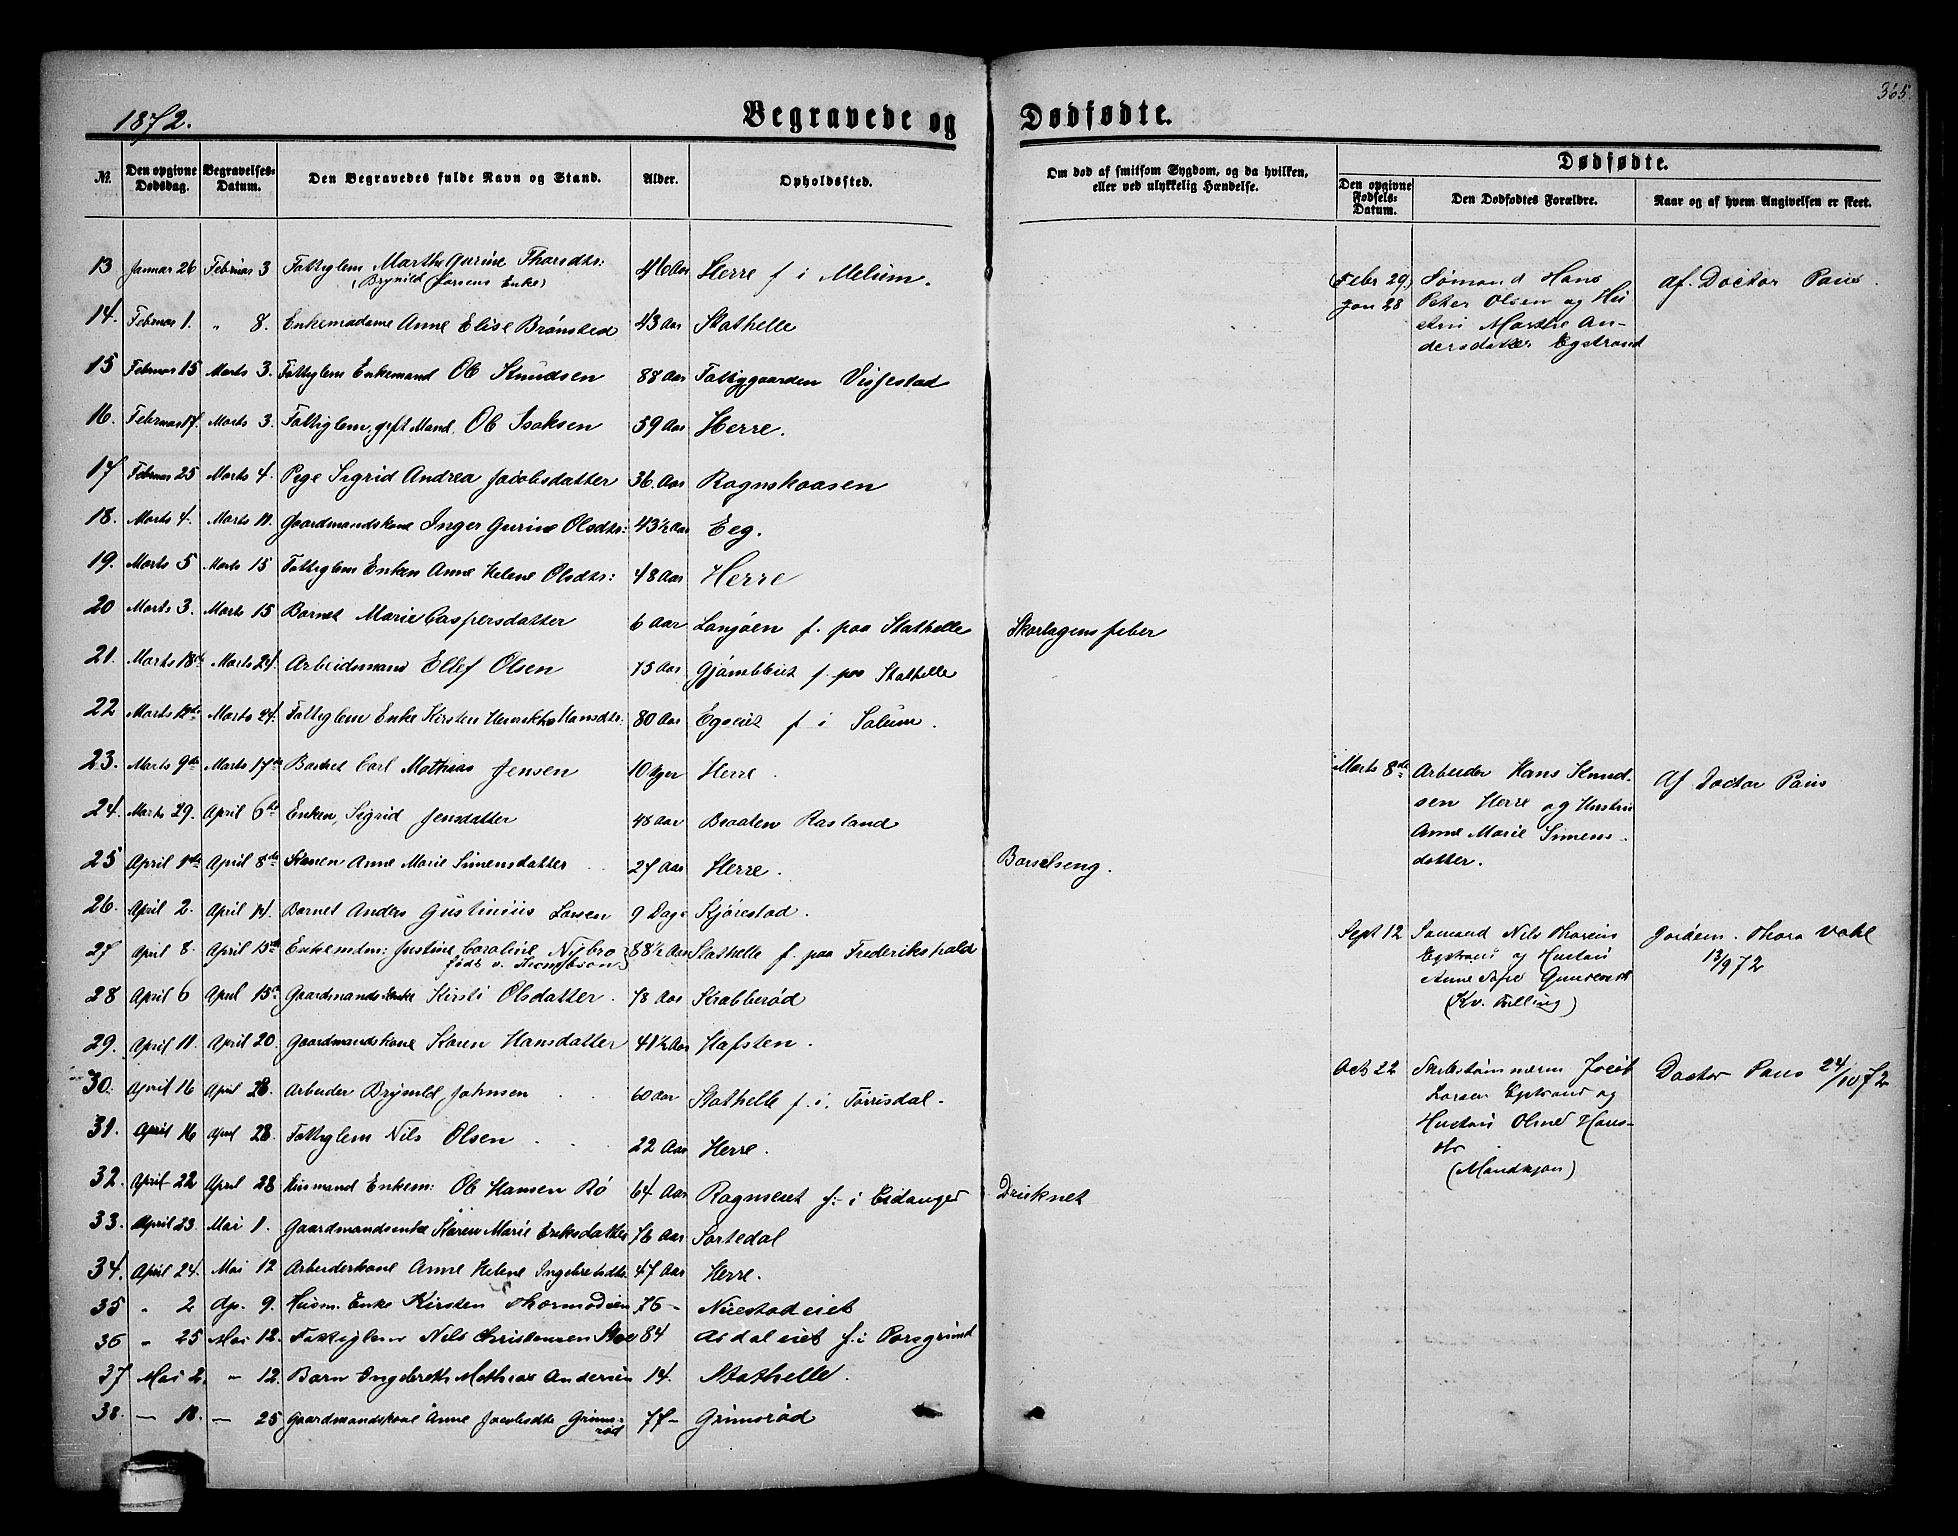 365.
1872.
Begravede og Dødfødte.
№. Den opgivne Dødsdag. Begravelses-Datum. Den Begravedes fulde Navn og Stand. Alder. Opholdssted. Om død af smitsom Sygdom, og da hvilken, eller ved ulykkelig Hændelse.
Dødfødte.
Den opgivne Fødsels-Datum. Den Dødfødtes Forældre. Naar og af hvem Angivelsen er skeet.
13 Januar 26 Februar 3 Fattiglem Marthe Gurine Thorsdtr: 46 Aar Herre f i Melum.
(Brynild Enke)
14. Februar 1. " 8. Enkemadame Anne Elise Brønsted 43 Aar Stathelle
15 Februar 15 Marts 3. Fattiglem Enkemand Ole Knudsen 88 Aar Fattiggaarden Vissestad
16. Februar 17. Marts 3. Fattiglem, gift Mand, Ole Isaksen 59 Aar Herre.
17 Februar 25 Marts 4. Pige Sigrid Andrea Jacobsdatter 36. Aar Rognskaasen
18. Marts 4. Marts 11. Gaardmandskone Inger Gurine Olsdtr: 43½ Aar Eeg.
19. Marts 5 Marts 15 Fattiglem Enken Anne Helene Olsdtr: 48 Aar Herre
20 Marts 3. Marts 15 Barnet Marie Caspersdatter 6 Aar Langøen f. paa Stathelle Skarlagensfeber
21. Marts 18de Marts 24. Arbeidsmand Ellef Olsen 75 Aar f. paa Stathelle
22 Marts Marts 24. Fattiglem Enke Kirsten Hansdtr: 80 Aar Egseiet f i Solum.
23. Marts 9de Marts 17de Barnet Carl Mathias Jensen 10 Herre.
24. Marts 29. April 6te Enken, Sigrid Jensdatter 48 Aar Braaten Rasland
25 April 1ste April 8de Konen Anne Marie Simensdatter 27 Aar Herre. Barselseng.
26. April 2. April 14. Barnet Anders Gustinius Larsen 9 Dage Kjørestad.
27 April 8. April 15de Enkemdm: Justine Caroline Nybro 88½ Aar Stathelle f. paa Frederikshald
født v.
28 April 6 April 15de Gaardmands Enke Kirsti Olsdatter. 78 Aar Krabberød
29. April 11. April 20. Gaardmandskone Karen Hansdatter 41½ Aar Hafsten.
30. April 16 April 28. Arbeider Brynild Johnsen 60 Aar Stathelle f. i. Torrisdal.
31. April 16 April 28. Fattiglem Nils Olsen 22 Aar Herre.
32. April 22 April 28 Husmand Enkem: Ole Hansen Rø 64 Aar Rogneiet f: i Eidanger Druknet
33. April 23. Mai 1. Gaardmandsenke Karen Marie Eriksdatter 76 Aar Sortedal
34. April 24. Mai 12 Arbeiderkone Anne Helene Ingebretsdtr. 47 Aar Herre.
35 " 2 Ap. 9. Husm. Enke Kirsten Thormodsen 76 – Nuestadeiet
36 " 25 Mai 12. Fattiglem Nils Christensen 84 Asdaleiet f. i Porsgrund
37 Mai 2. " 12. Barn Ingebreth Mathias Andersen 14. Stathelle.
38. – 18. – 25 Gaardmandskone Anne Jacobsdtr Grims- 77 – Grimsrød
rød
(Febr 29) Sømand Hans af. Doctor Paus.
Jan 28 Peter Olsen og Hu
Marthe An-
dersdatter Egstrand
Marts 8de Arbeider Hans Knud- Af Doctor Paus
sen Herre og Hustru
Anne Marie Simens-
datter.
Sept 12 Sømand Nils Jordem. Thora Vahl
Egstrand og Hustru 13/9 72
Anne
(Kv. Tvilling)
Oct 22 Jacob Doctor Paus 24/10 72
Larsen Egstrand og
Hustru Oline Hans-
dtr
(Mandkjøn)